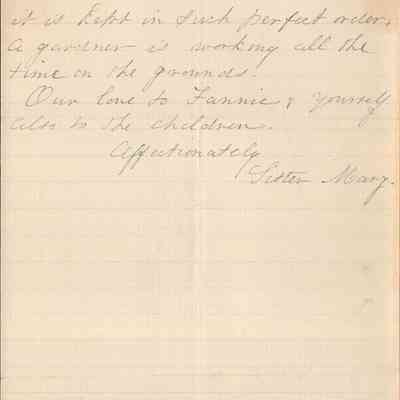 it is kept in such perfect order,
a gardner is working all the
time on the grounds.
Our love to Fannie & yourself
also to the children.
Affectionately
Sister Mary.